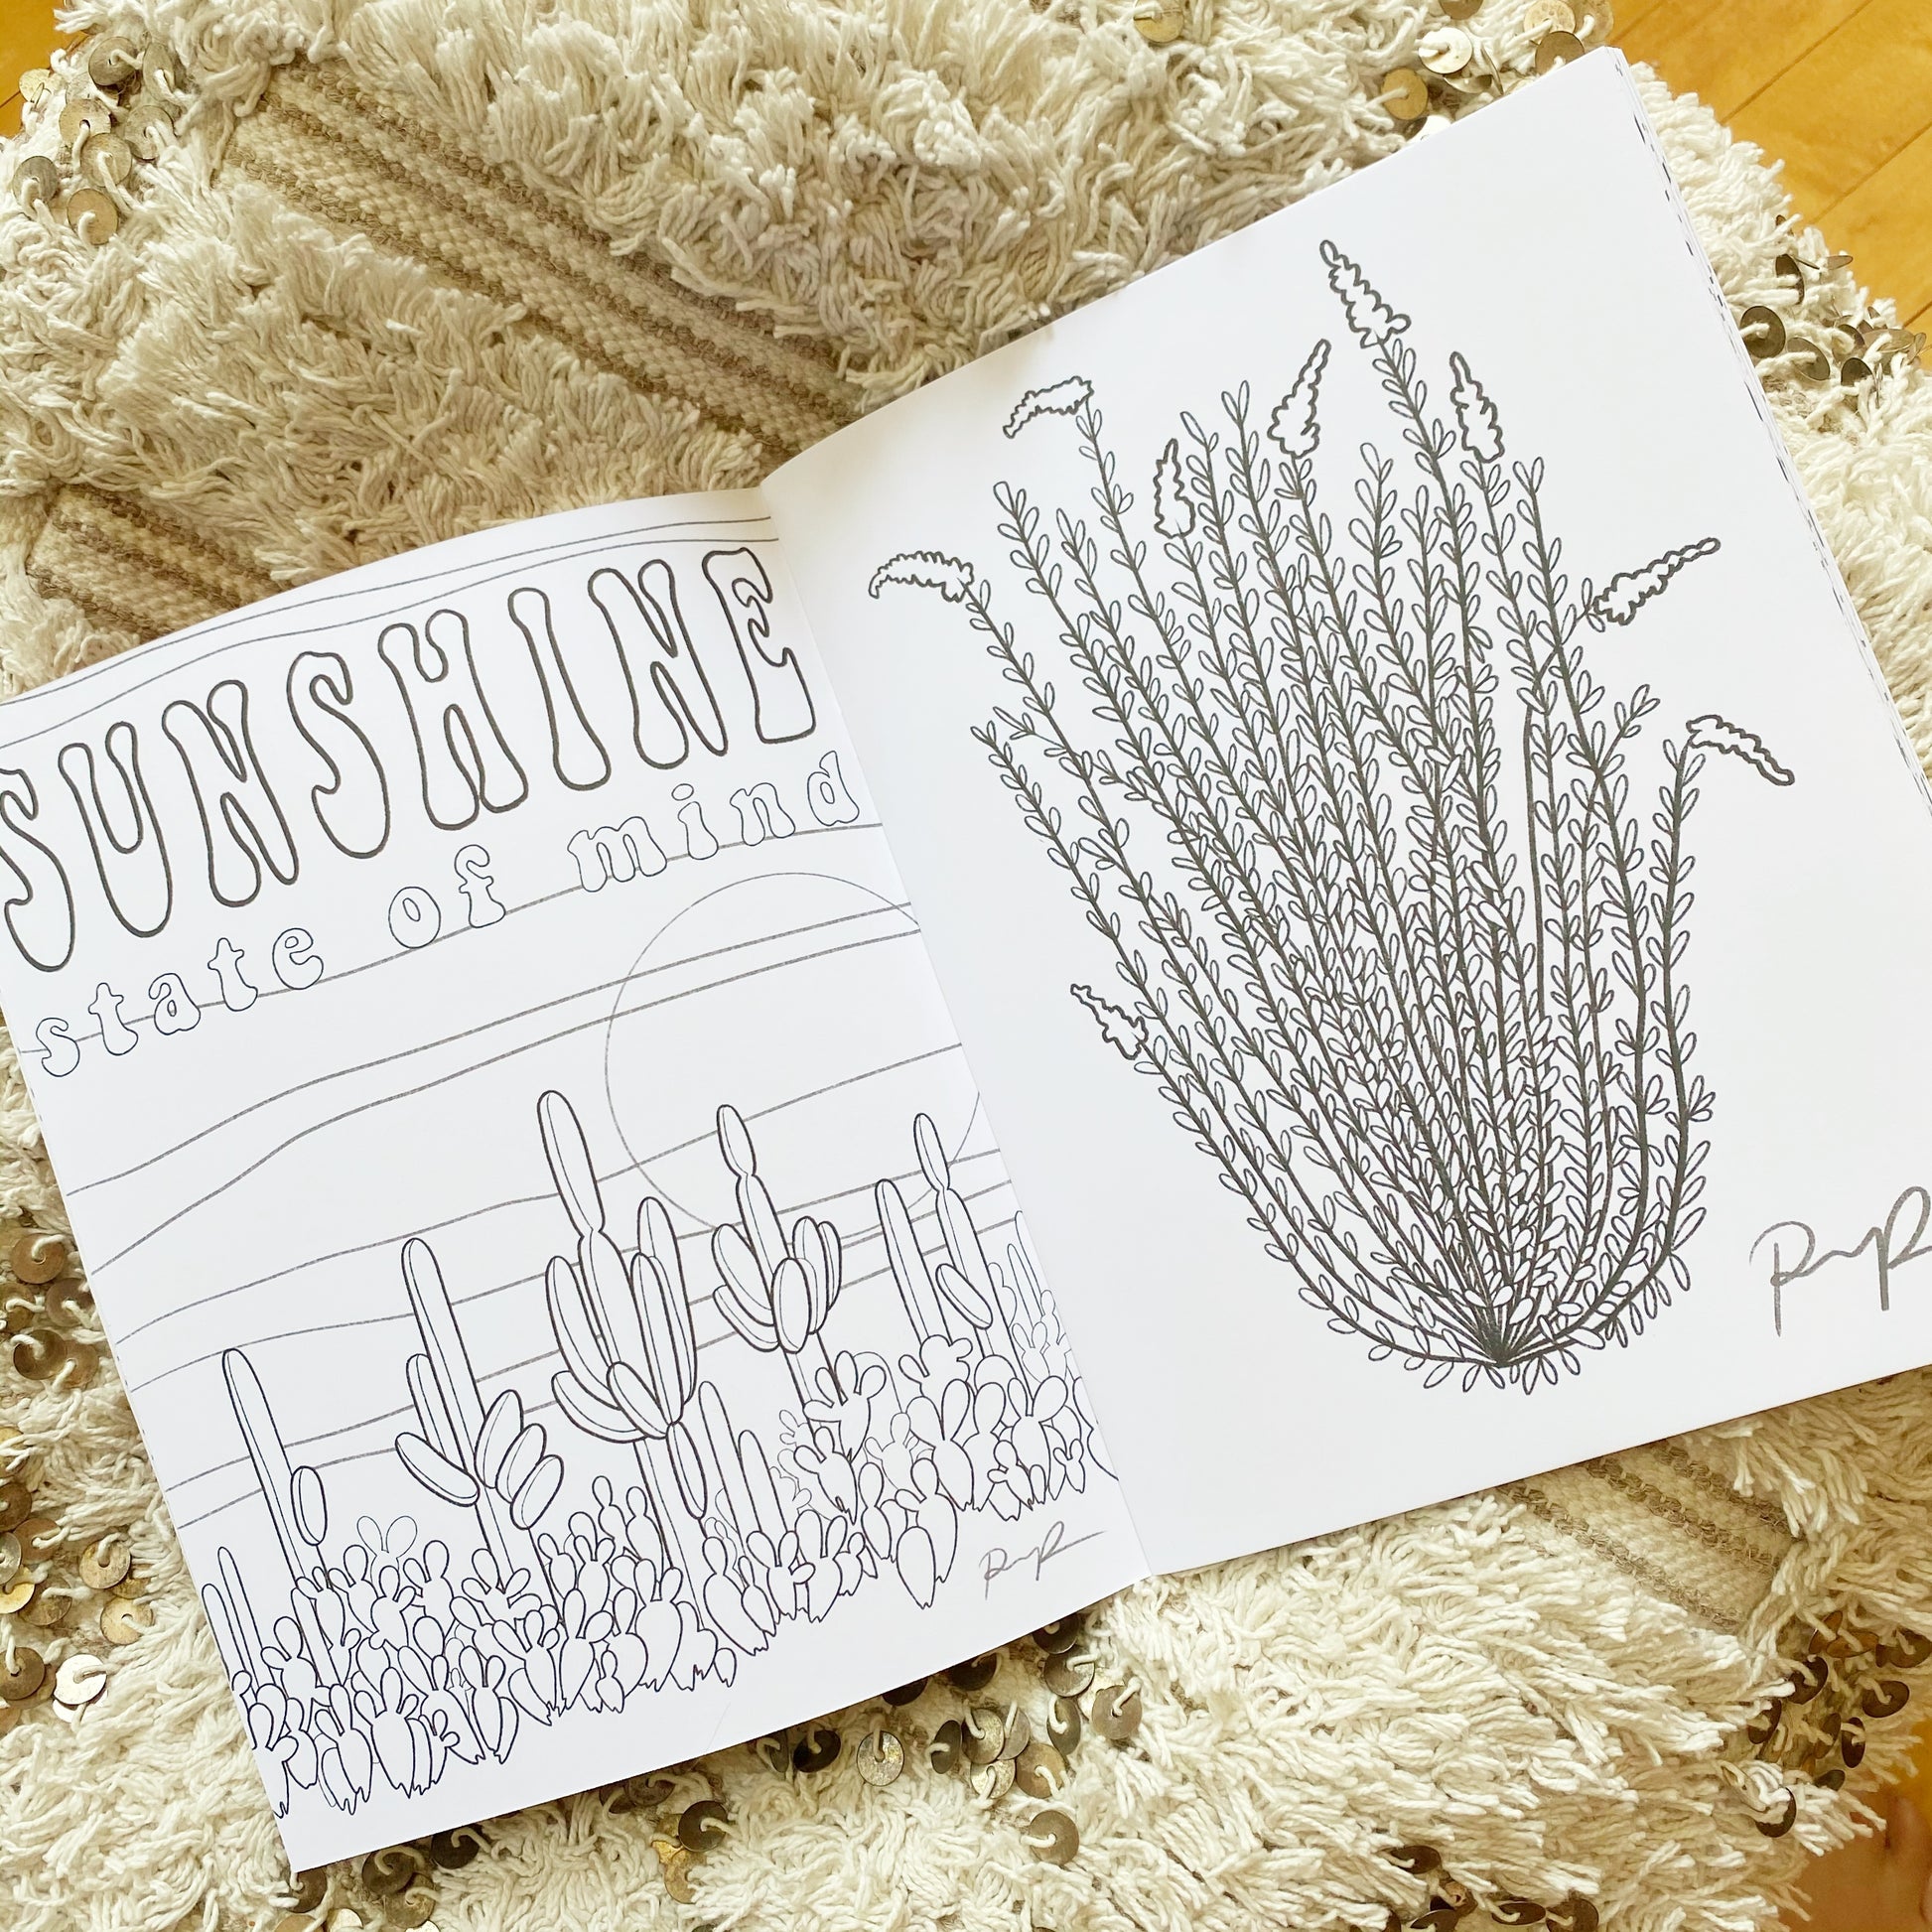 SUNSHINE
state of mind